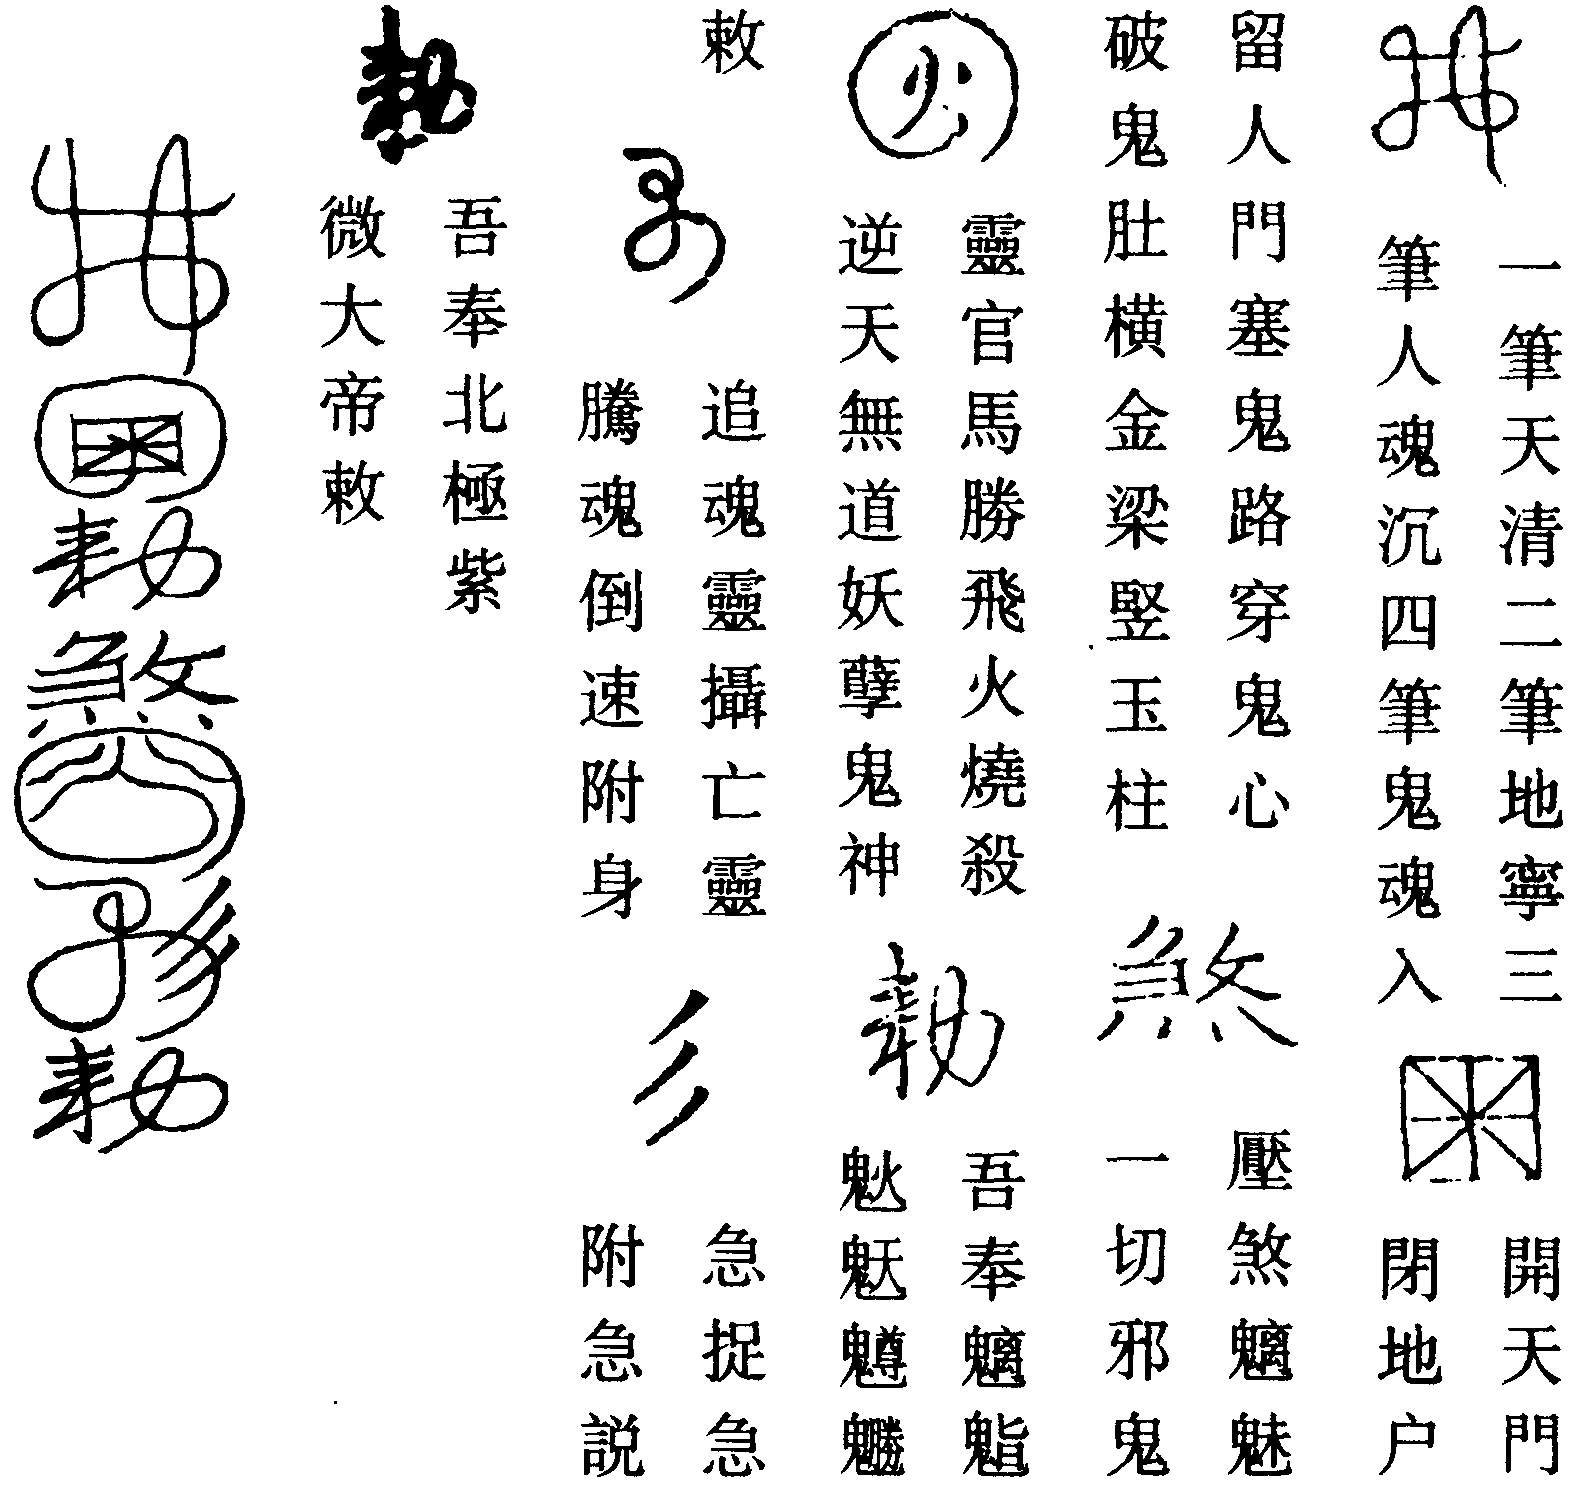 一筆天清二筆地寧三
筆人魂沉四筆鬼魂入
開天門
閉地户
留人門塞鬼路穿鬼心
破鬼肚橫金梁竪玉柱
煞
壓煞魑魅
一切邪鬼
靈官馬勝飛火燒殺
逆天無道妖孽鬼神
勅
吾奉魑
敕
追魂靈攝亡靈
騰魂倒速附身
彡
急捉急
附急説
勅
吾奉北極紫
微大帝敕
勅
煞
勅